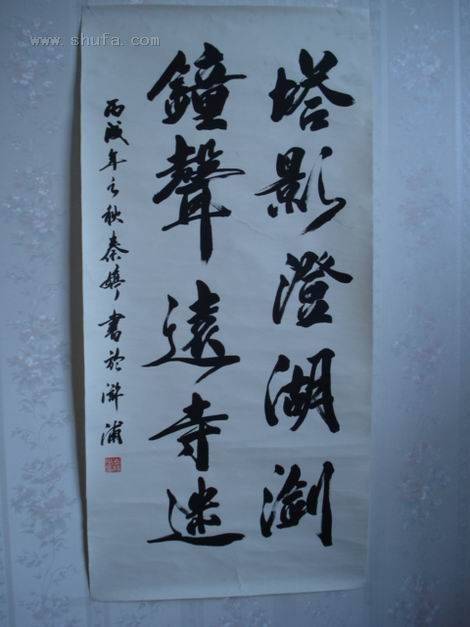 www.shufa.com
塔影澄湖瀏
鐘聲遠寺迷
丙戌年之秋秦婷書於滸浦